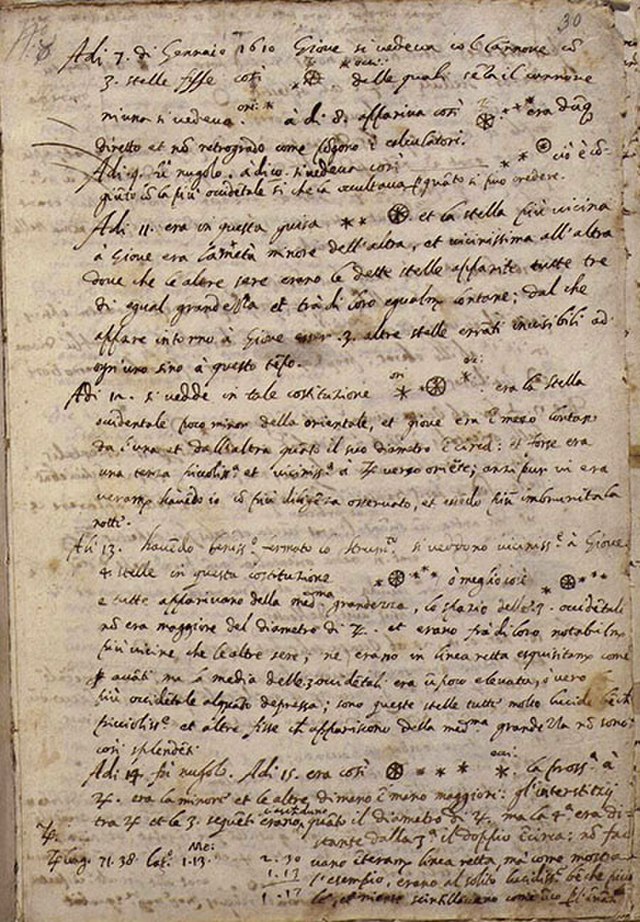 30
Adi 7. di Gennaio 1610 Giove si vedeva col Cannone cõ
3. stelle fisse così delle quali sẽza il cannone
niuna si vedeva. à dì 8. appariva così era dũq
diretto et nõ retrogrado come põgono i calculatori.
Adi 9. fù nugolo. à dì 10. si vedeva così cioè cõ-
giũto cõ la più occidẽtale sì che la occultava p quãto si può credere.
Adi 11. era in questa guisa et la stella più vicina
à Giove era la metà minore dell'altra, et vicinissima all'altra
dove che le altre sere erano le dette stelle apparite tutte tre
di egual grandezza et trà di loro egualmẽ lontane; dal che
appare intorno à Giove esser .3. altre stelle errati invisibili ad
ogn'uno sino à questo tẽpo.
Adi 12. si vedde in tale costituzione era la stella
occidentale poco minor della orientale, et giove era ĩ mezo lontano
da l'una et dall'altra quãto il suo diametro ĩ circa: et forse era
una terza piccoliss.ª et viciniss.ª à ♃ verso oriẽte; anzi pur vi era
veramẽ havẽdo io cõ più diligẽza osservato, et essẽdo più imbrunita la
notte.
Adi 13. havẽdo beniss.º fermato lo strumẽto si veddono viciniss.e à Giove
4 stelle in questa costituzione ò meglio così
e tutte apparivano della medma grandezza, lo spazio delle 3. occidẽtali
nõ era maggiore del diametro di ♃. et erano frà di loro notabilmẽ
più vicine che le altre sere; ne erano in linea retta esquisitamẽ come
p avãti ma la media delle 3 occidẽtali era ũ poco elevata, ò vero la
più occidẽtale alquãto depressa; sono queste stelle tutte molto lucide bẽche
piccioliss.e et altre fisse che appariscono della medma grandezza nõ sono
così splendẽti.
Adi 14. fù nugolo. Adi 15. era così la pross.ª à
♃. era la minore et le altre di mano ĩ mano maggiori: gl'interstitij
tra ♃ et le 3. seguẽti erano quãto il diametro di ♃. ma la 4.ª era di-
stante dalla 3.ª il doppio ĩ circa; nõ fac
♃ long. 71.38 lat. Me: 1.13. vano ĩteramẽ linea retta, ma come mostra
2. 30
1.17 l'esempio, erano al solito lucidiss.e bẽche picco
1. 17 le, et niente scintillavano come anco p l'inãti